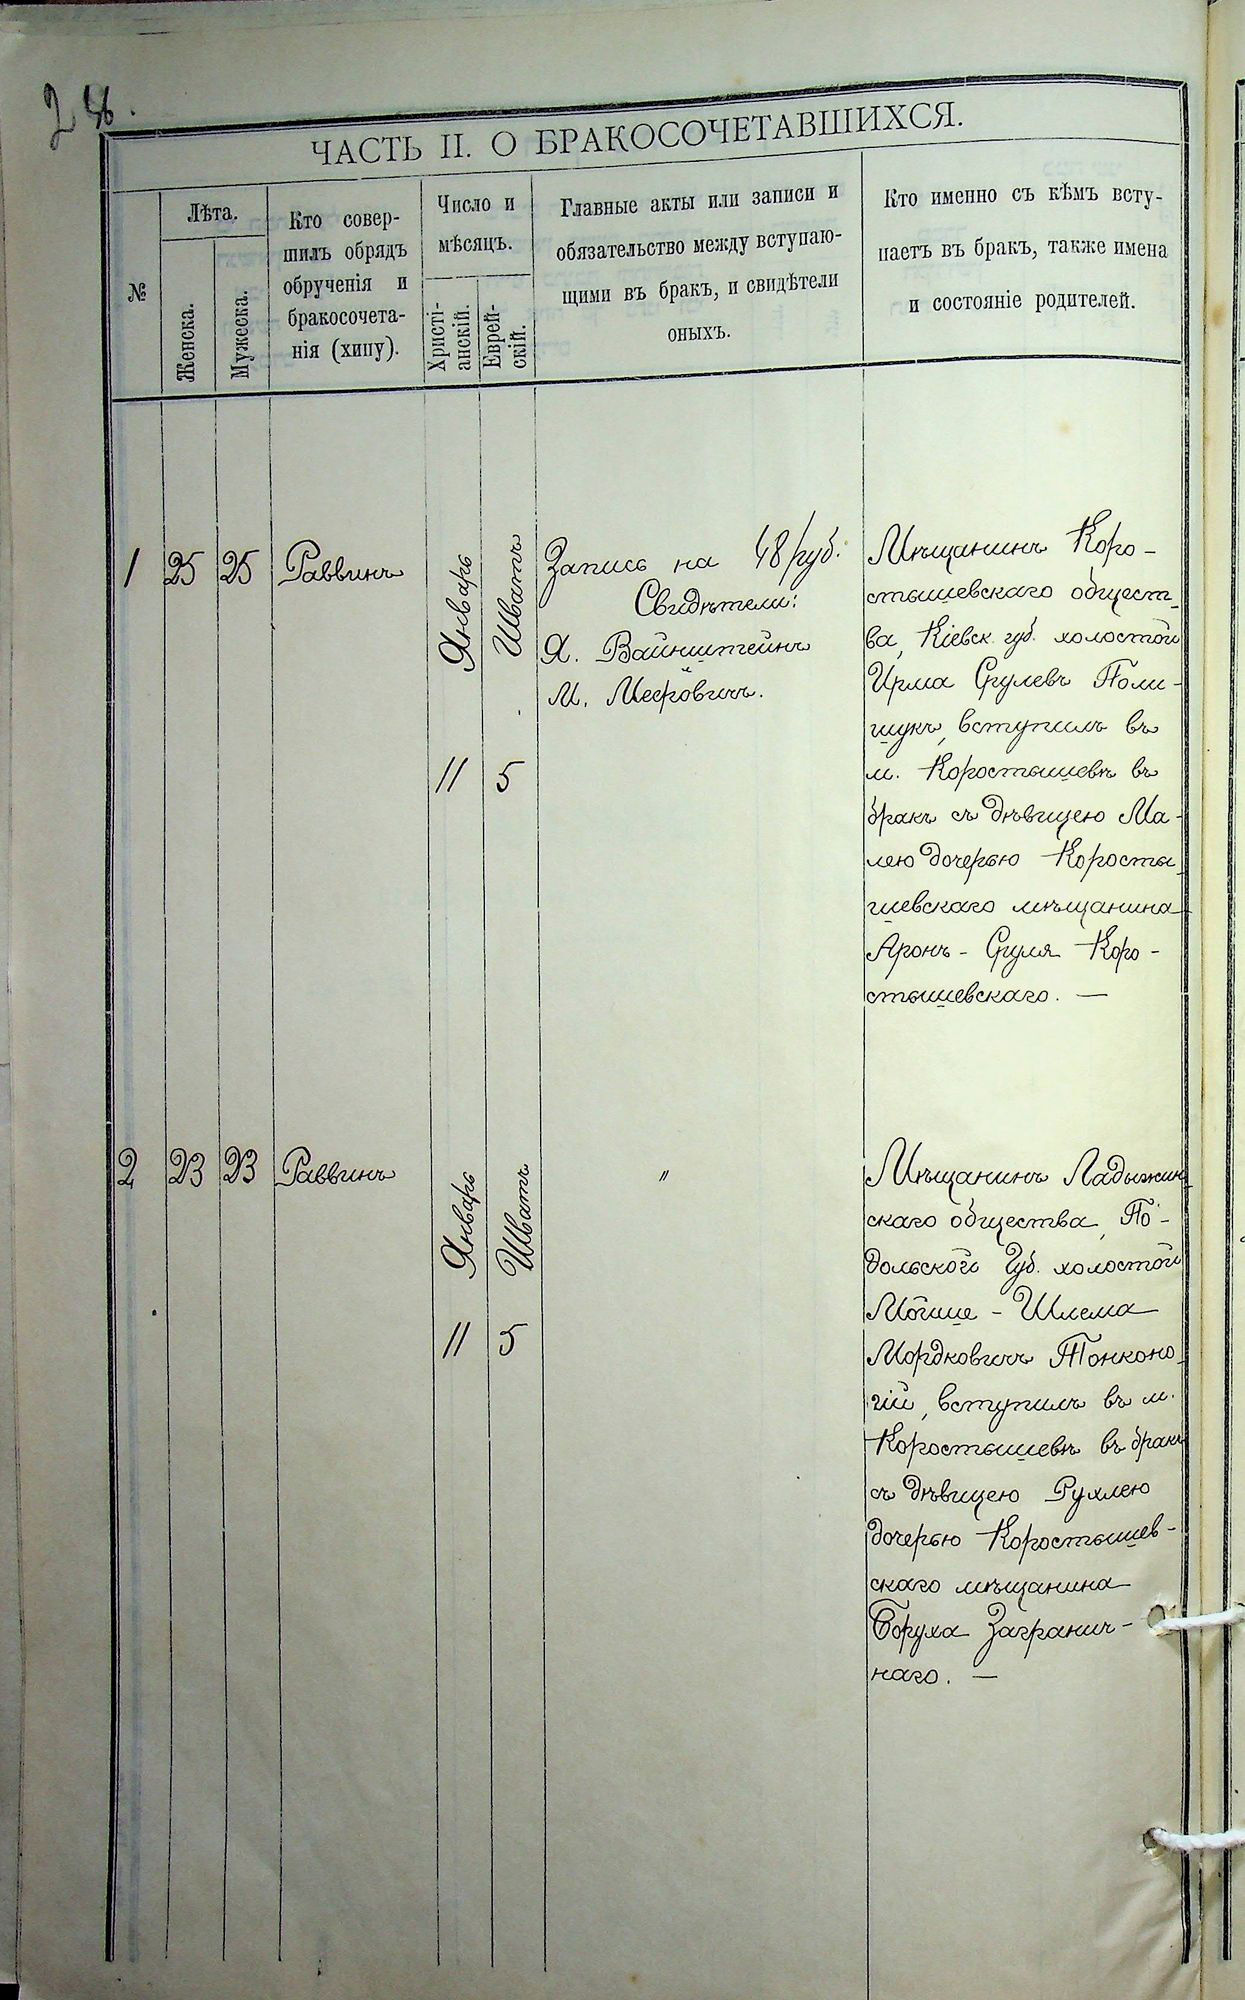 ЧАСТЬ II. О БРАКОСОЧЕТАВШИХСЯ.
№
Лѣта.
Женска.
Мужеска.
Кто совер-
шилъ обрядъ
обрученія и
бракосочета-
нія (хипу).
Число и
мѣсяцъ.
Христі-
анскій.
Еврей-
скій.
Главные акты или записи и
обязательство между вступаю-
щими въ бракъ, и свидѣтели
оныхъ.
Кто именно съ кѣмъ всту-
паетъ въ бракъ, также имена
и состояніе родителей.
1
25
25
Раввинъ
Январь
11
Шватъ
5
Запись на 48 руб.
Свидѣтели:
Я. Вайнштейнъ
М.
Мѣщанинъ Коро-
стышевскаго общест-
ва, Кіевск. губ. холостой
Ирма Срулевъ Поли-
щукъ, вступилъ въ
м. Коростышевѣ въ
бракъ съ дѣвицею Ма-
лею дочерью Коросты-
шевскаго мѣщанина
Аронъ-Сруля Коро-
стышевскаго. —
2
23
23
Раввинъ
Январь
11
Шватъ
5
"
Мѣщанинъ Ладыжин-
скаго общества, По-
дольской Губ. холостой
Мойше - Шлема
Мордковичъ Тонконо-
гій, вступилъ въ м.
Коростышевѣ въ бракъ
съ дѣвицею Рухлею
дочерью Коростышев-
скаго мѣщанина
Боруха Загранич-
наго. —